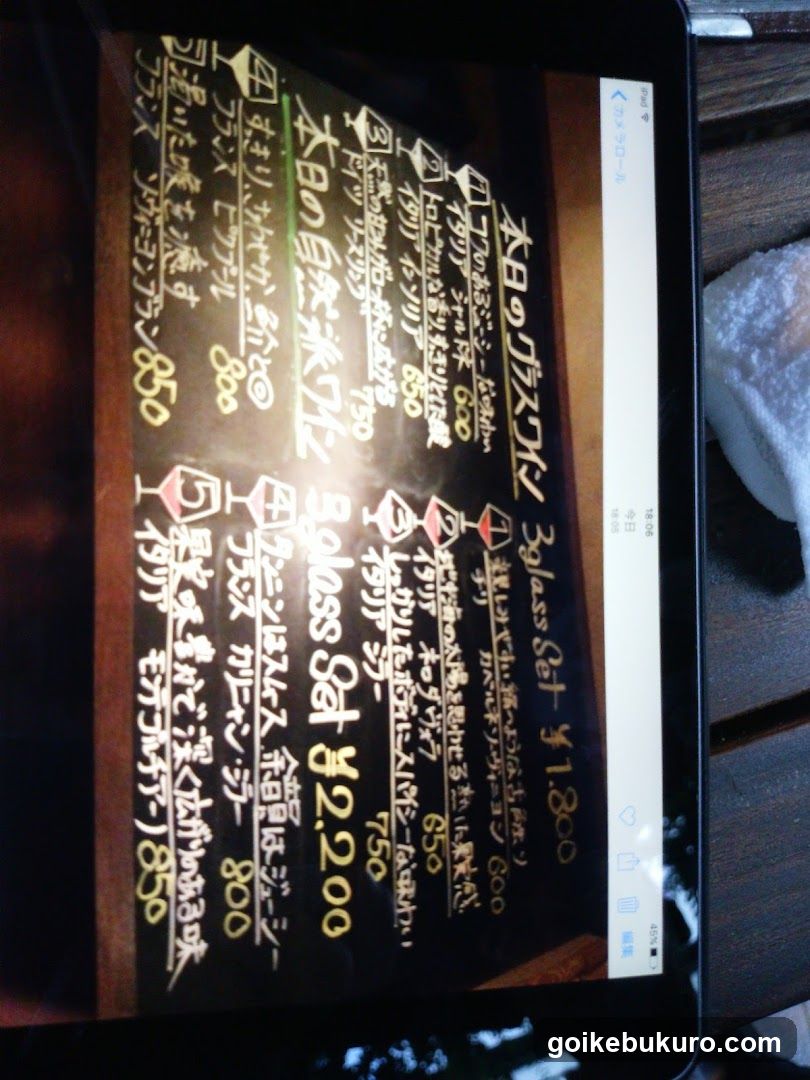 iPad
18:06
45%
カメラロール
今日
18:05
編集
本日のグラスワイン 3glass Set ¥1.800
1 コクのあるジューシーな味わい
イタリア シャルドネ 600
2 トロピカルな香り
イタリア インソリア 650
3 天然の甘みが口一杯に広がる
ドイツ リースリング 750
1
チリ カベルネソーヴィニヨン 600
2 地中海の太陽を思わせる熟した果実感
イタリア ネロダヴォラ 650
3 しっかりしたボディにスパイシーな味わい
イタリア シラー 750
本日の自然派ワイン 3glass Set ¥2,200
4 すっきり、さわやか
フランス ピクプール 800
5 渇いた喉を癒す
フランス ソーヴィニヨンブラン 850
4 タンニンはスムース 余韻はジューシー
フランス カリニャン・シラー 800
5 果実味豊かで深く広がりのある味
イタリア モンテプルチアーノ 850
goikebukuro.com